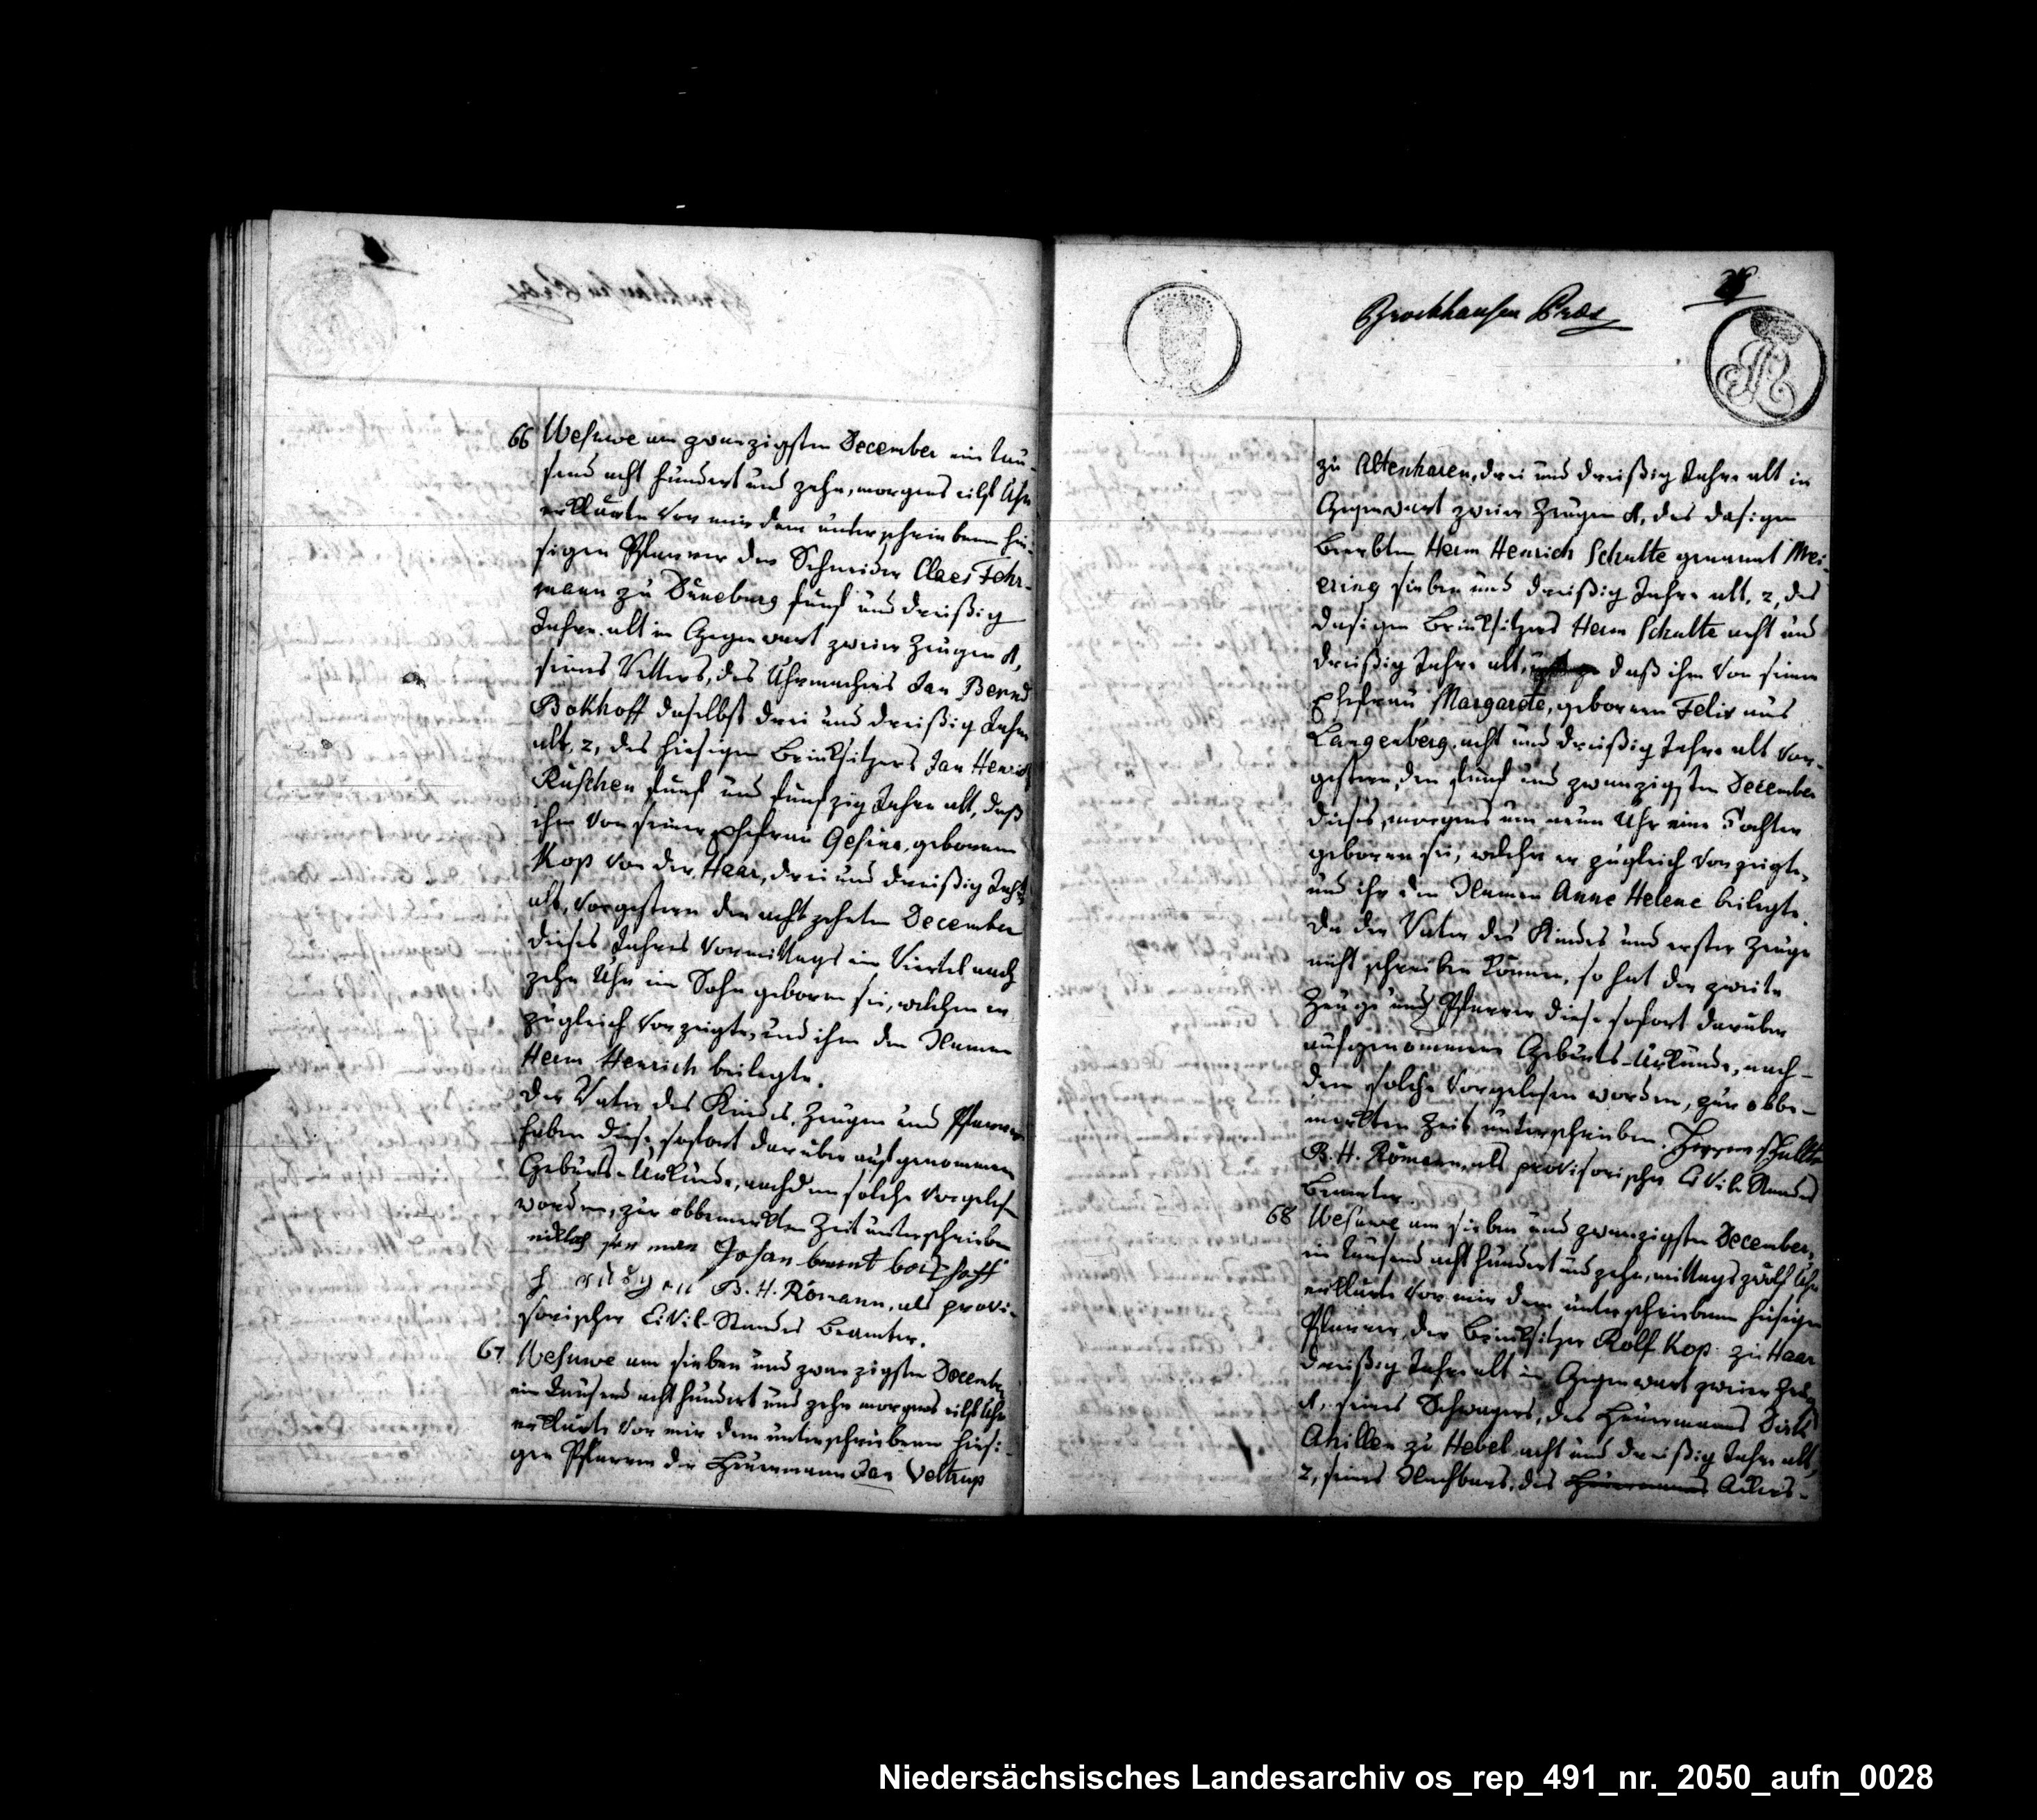 66 Wesuwe am zwanzigsten December ein tau-
send acht hundert und zehn, morgens eilf Uhr
erklärte vor mir dem unterschriebenen hie-
sigen Pfarrer der Schneider Claes Fehr-
mann zu Düneburg fünf und dreißig
Jahre alt in Gegenwart zweier Zeugen 1,
seines Vetters, des Uhrmachers Jan Bernd
Bokhoff daselbst drei und dreißig Jahre
alt, 2, des hiesigen Brinksitzers Jan Henrich
Rüschen fünf und fünfzig Jahre alt, daß
ihm von seiner Ehefrau Gesina, gebornen
Kop von der Haar, drei und dreißig Jahre
alt, vorgestern den achtzehnten December
dieses Jahres Vormittags ein Viertel nach
zehn Uhr ein Sohn geboren sei, welchen er
zugleich vorzeigte, und ihm den Namen
Herm Henrich beilegte.
Der Vater des Kindes, Zeugen und Pfarrer
haben diese sofort darüber aufgenommene
Geburts-Urkunde, nachdem solche vorgelesen
worden, zur obbemerkten Zeit unterschrieben
Johan
B. H. Römann, als provi-
sorischer Civil-Standes Beamter.
67 Wesuwe am sieben und zwanzigsten December
ein tausend acht hundert und zehn morgens eilf Uhr
erklärte vor mir dem unterschriebenen hiesi-
gen Pfarrer der Heuermann Jan Veltrup
28
Brockhausen
zu Altenharen, drei und dreißig Jahre alt in
Gegenwart zweier Zeugen 1, des dasigen
Beerbten Herm Henrich Schulte genannt Mei-
ering sieben und dreißig Jahre alt, 2, des
dasigen Brinksitzers Herm Schulte acht und
dreißig Jahre alt, daß ihm von seiner
Ehefrau Margarete, gebornen Felix aus
Langenberg, acht und dreißig Jahre alt vor-
gestern, den fünf und zwanzigsten December
dieses, morgens um neun Uhr eine Tochter
geboren sei, welche er zugleich vorzeigte,
und ihr den Namen Anne Helene beilegte.
Da der Vater des Kindes und erster Zeuge
nicht schreiben können, so hat der zweite
Zeuge und Pfarrer diese sofort darüber
aufgenommene Geburts-Urkunde, nach-
dem solche vorgelesen worden, zur obbe-
merkten Zeit unterschrieben. Herm schullte
B. H. Römann, als provisorischer Civil-Standes
Beamter.
68 Wesuwe am sieben und zwanzigsten December,
ein tausend acht hundert und zehn, mittags zwölf Uhr
erklärte vor mir dem unterschriebenen hiesigen
Pfarrer, der Brinksitzer Rolf Kop zu Haar
dreißig Jahre alt in Gegenwart zweier Zeugen
1, seines Schwagers, des Heuermanns Dirk
Ahillen zu Hebel acht und dreißig Jahre alt,
2, seines Nachbars, des Heuermanns Ackers-
Niedersächsisches Landesarchiv os_rep_491_nr._2050_aufn_0028